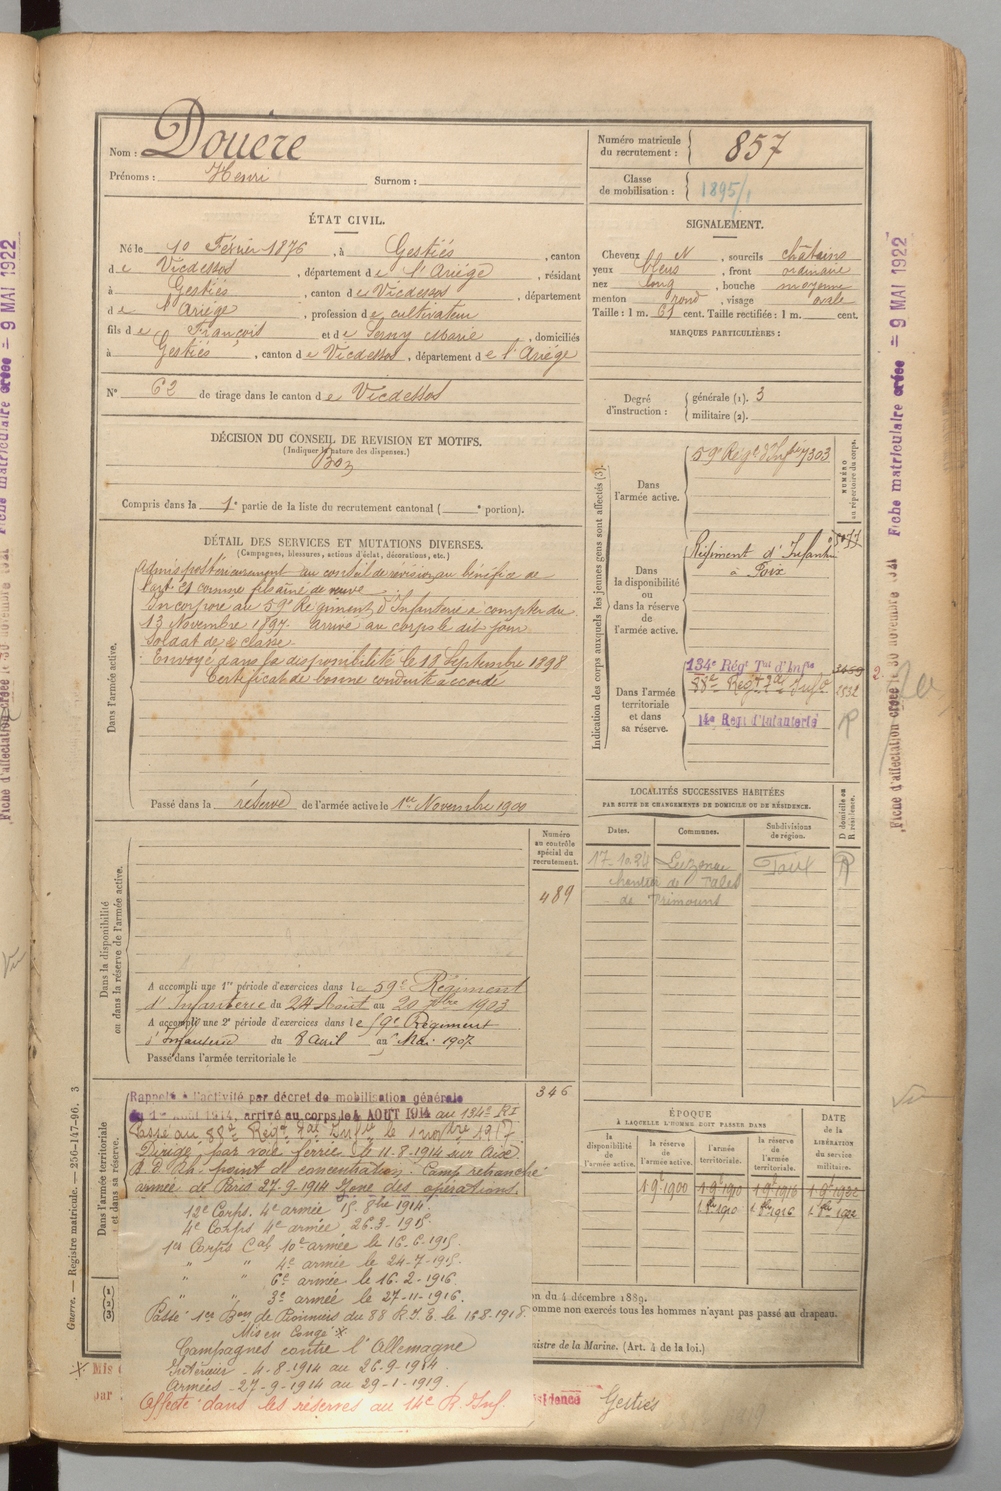 Nom : Douère
Prénoms : Henri Surnom :
Numéro matricule du recrutement : 857
Classe de mobilisation : 1895/1
ÉTAT CIVIL.
Né le 10 Février 1876, à Gestiès, canton
de Vicdessos, département de l'Ariège, résidant
à Gestiès, canton de Vicdessos, département
de l'Ariège, profession de cultivateur
fils de François et de Serny Marie, domiciliés
à Gestiès, canton de Vicdessos, département de l'Ariège
N° 62 de tirage dans le canton de Vicdessos
SIGNALEMENT.
Cheveux N, sourcils châtains
yeux bleus, front ordinaire
nez long, bouche moyenne
menton rond, visage ovale
Taille : 1 m. 61 cent. Taille rectifiée : 1 m. cent.
MARQUES PARTICULIÈRES :
Degré d'instruction : générale (1). 3
militaire (2).
DÉCISION DU CONSEIL DE REVISION ET MOTIFS.
(Indiquer la nature des dispenses.)
Bon
Compris dans la 1e partie de la liste du recrutement cantonal ( e portion).
DÉTAIL DES SERVICES ET MUTATIONS DIVERSES.
(Campagnes, blessures, actions d'éclat, décorations, etc.)
Dans l'armée active.
Admis postérieurement au conseil de révision au bénéfice de
l'art. 21 comme fils aîné de veuve
Incorporé au 59e Régiment d'Infanterie à compter du
13 Novembre 1897. Arrivé au corps le dit jour
Soldat de 2e classe.
Envoyé dans la disponibilité le 18 Septembre 1898
Certificat de bonne conduite accordé
Passé dans la réserve de l'armée active le 1er Novembre 1900
Indication des corps auxquels les jeunes gens sont affectés (3).
NUMÉRO au répertoire du corps.
Dans l'armée active.
59e Régt d'Infie 7303
Dans la disponibilité ou dans la réserve de l'armée active.
Régiment d'Infanterie
à Foix
Dans l'armée territoriale et dans sa réserve.
134e Régt Tal d'Infie
88e Régt Tal Infie
14e Regt d'Infanterie
R
LOCALITÉS SUCCESSIVES HABITÉES
PAR SUITE DE CHANGEMENTS DE DOMICILE OU DE RÉSIDENCE.
Dates. Communes. Subdivisions de région. D domicile ou R résidence.
Luzenac R
chantier de Talc
de Trimouns
Dans la disponibilité ou dans la réserve de l'armée active.
Numéro au contrôle spécial du recrutement.
489
A accompli une 1re période d'exercices dans le 59e Régiment
d'Infanterie du 24 Août au 20 7bre 1903
A accompli une 2e période d'exercices dans le 59e Régiment
d'Infanterie du 8 Avril au 4 Mai 1907
Passé dans l'armée territoriale le
346
Dans l'armée territoriale et dans sa réserve.
Rappelé à l'activité par décret de mobilisation générale
du 1er Août 1914, arrivé au corps le 4 AOUT 1914 au 134e RI
Passé au 88e Régt Tal Infie le 1 novbre 1917
Dirigé par voie ferrée le 11-8-1914 sur Aix
point de concentration. Camp retranché
armée de Paris 27-9-1914 Zone des opérations.
12e Corps. 4e armée 15 8bre 1914
4e Corps 4e armée 26-3-1915
1er Corps Cal 10e armée le 16-6-1915.
" " 4e armée le 24-7-1915.
" " 6e armée le 16-2-1916.
" " 3e armée le 27-11-1916.
Passé 1er Bon de Pionniers du 88 R.I.T. le 16 8 1918.
Mis en Congé X
Campagnes contre l'Allemagne
Intérieur - 4-8-1914 au 26-9-1914.
Armées - 27-9-1914 au 29-1-1919.
Affecté dans les réserves au 14e R. Inf.
ÉPOQUE
A LAQUELLE L'HOMME DOIT PASSER DANS
la disponibilité de l'armée active.
la réserve de l'armée active.
l'armée territoriale.
la réserve de l'armée territoriale.
DATE de la LIBÉRATION du service militaire.
1 9e 1900 1 9e 1910 1 9e 1916 1 9e 1922
1 8bre 1910 1 8bre 1916 1 8bre 1922
on du 4 décembre 1889.
omme non exercés tous les hommes n'ayant pas passé au drapeau.
nistre de la Marine. (Art. 4 de la loi.)
X Mis
par
sidence Gestiès
Guerre. — Registre matricule. — 256-147-96. 3
Fiche matriculaire créée = 9 MAI 1922
Fiche d'affectation créée le 30 novembre 1921
Fiche matriculaire créée = 9 MAI 1922
Fiche d'affectation créée le 30 novembre 1921
Vu